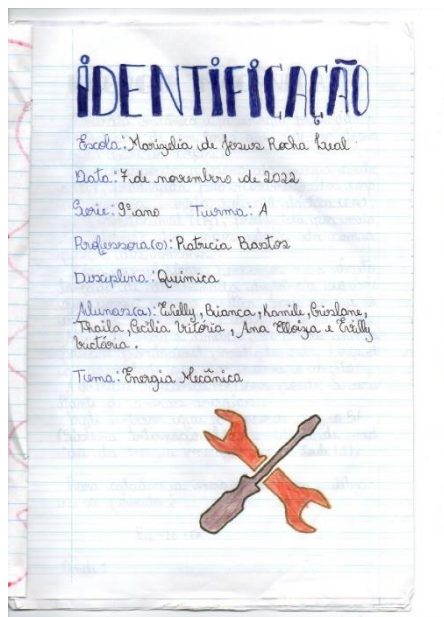 IDENTIFICAÇÃO
Escola: Marizelia de Jesus Rocha Leal
Data: 7 de novembro de 2022
Serie: 9º ano Turma: A
Professora(o): Patricia Bastos
Disciplina: Química
Alunas(a): Evelly, Bianca, Kamile, Crislane,
Thaila, Cecilia Vitória, Ana Elloiza e Evilly
Victória.
Tema: Energia Mecânica